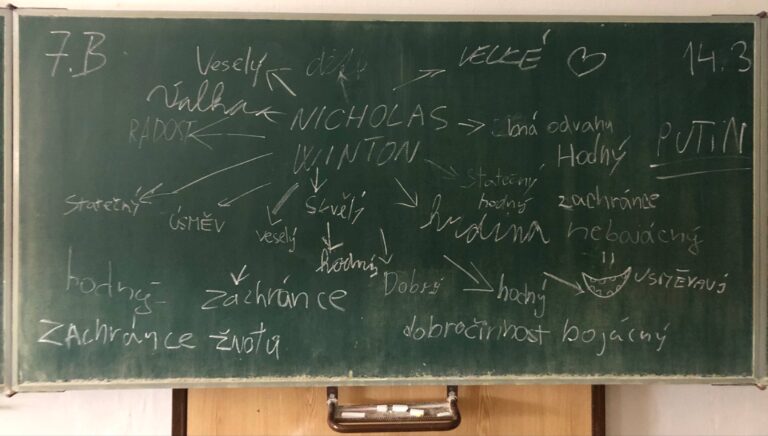 7.B
Veselý
VELKÉ ♡
14.3
Válka
NICHOLAS
RADOST
má odvahu
PUTIN
WINTON
Hodný
Statečný
hodný
zachránce
Statečný
ÚSMĚV
veselý
Skvělý
hrdina
nebojácný
hodný
hodný
Dobrý
hodný
USMĚVAVÝ
záchránce
ZAchránce žnotu
dobročinnost bojácný